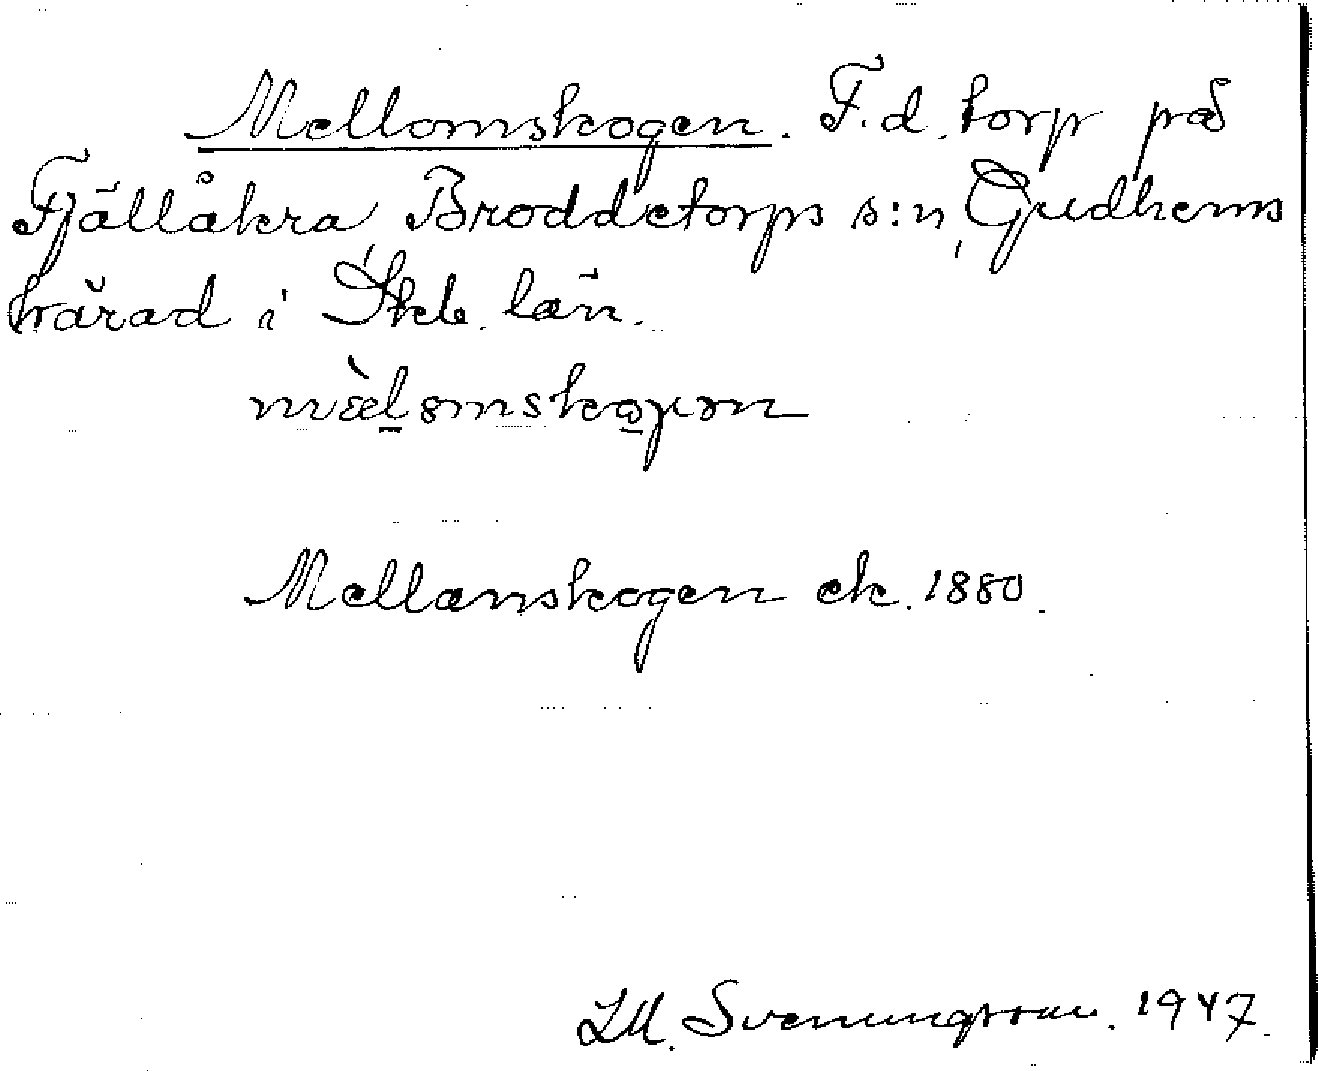 Mellomskogen. F.d. torp på
Fjällåkra, Broddetorps s:n, Gudhems
härad i Skb. län.
mæ̀l̠ømsko̠γən
Mellanskogen ek. 1880.
Svenungsson. 1947.